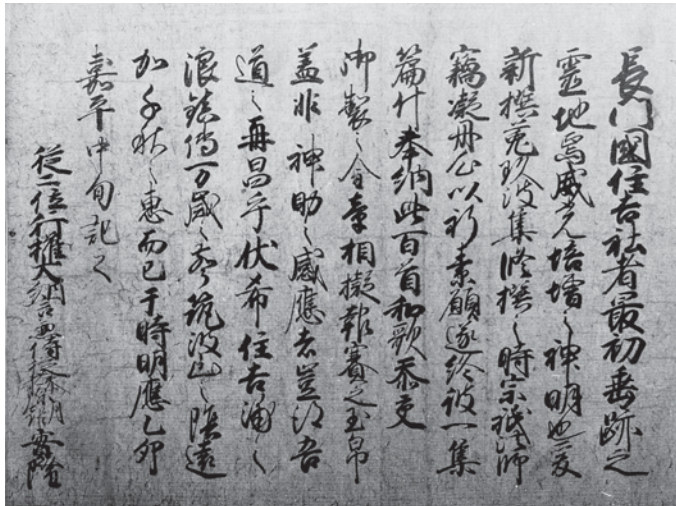 長門國住吉社者最初垂跡之
霊地為威光倍増之神明也爰
新撰菟玖波集修撰之時宗祇法師
竊凝丹心以祈素願遂終彼一集
篇什奉納此百首和歌忝交
御製之金章相擬報賽之玉帛
盖非神助之感應者豈得吾
道之再昌乎伏希住吉浦之
浪鎮偁万歳之声筑波山之陰遠
加千秋之恵而已于時明應乙卯
嘉平中旬記之
従二位行権大納言兼侍従藤原朝臣實隆